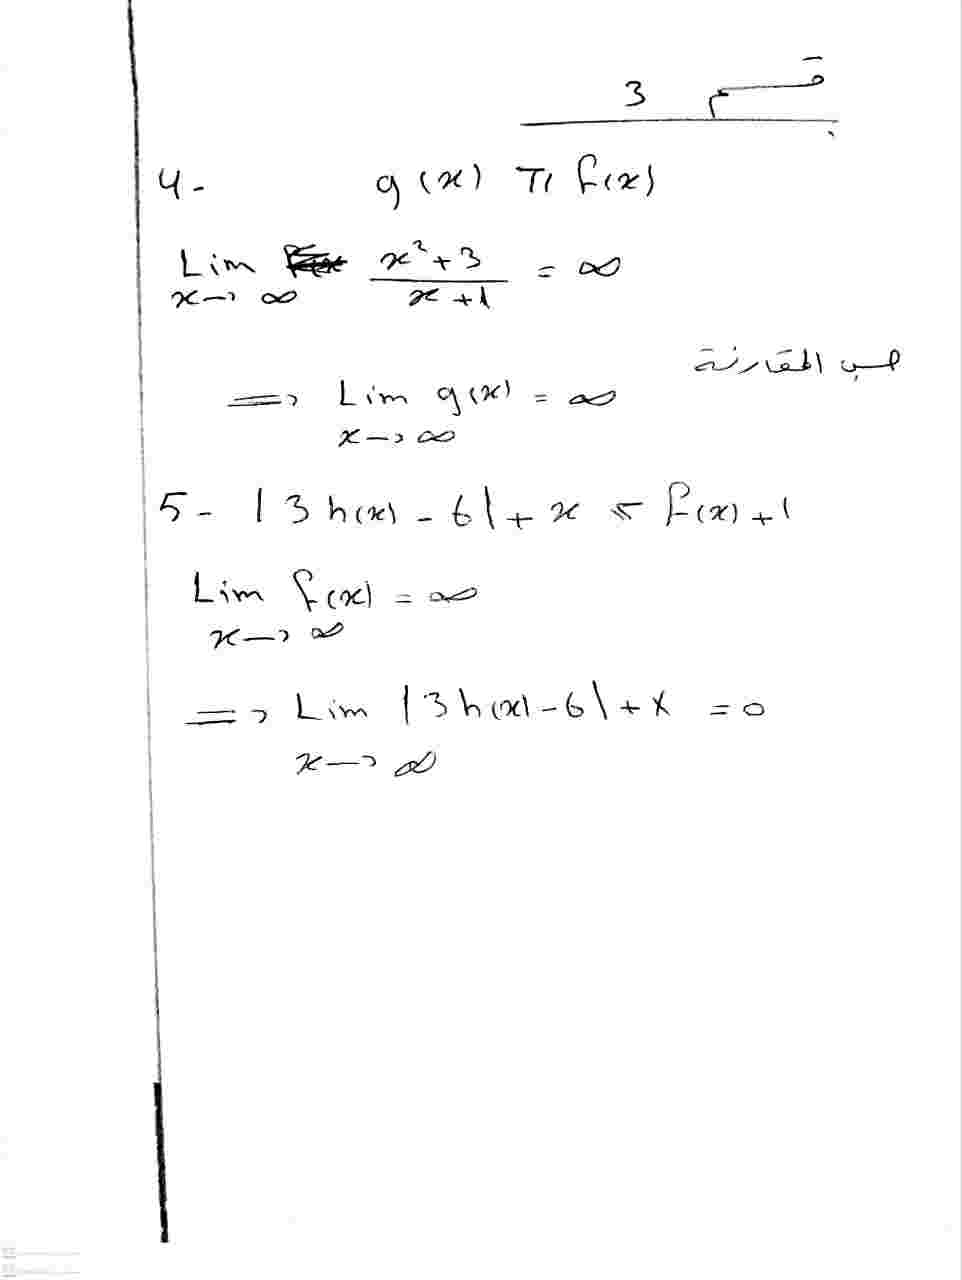 قسم 3
4- g(x) ⩾ f(x)
Lim x→∞ (x²+3)/(x+1) = ∞
حسب المقارنة
=> Lim x→∞ g(x) = ∞
5- |3h(x) - 6| + x ⩽ f(x) + 1
Lim x→∞ f(x) = ∞
=> Lim x→∞ |3h(x) - 6| + x = 0